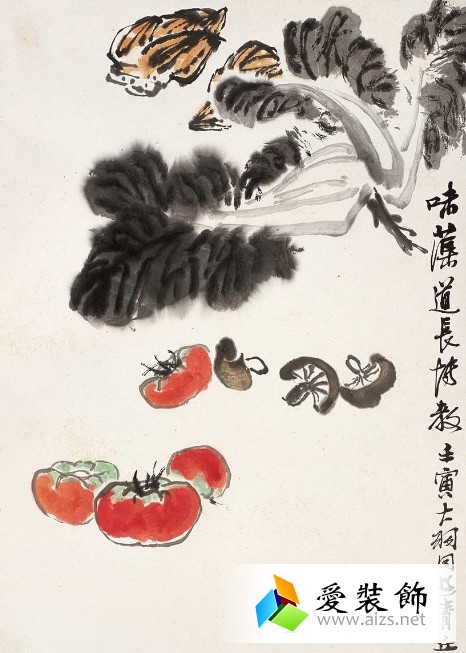 味 道長博教 壬寅大羽同 青
愛裝飾
www.aizs.net